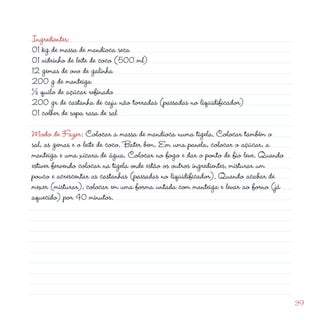 Ingredientes:
01 kg de massa de mandioca seca
01 vidrinho de leite de coco (500 ml)
12 gemas de ovo de galinha
200 g de manteiga
½ quilo de açúcar refinado
200 gr de castanha de caju não torradas (passadas no liquidificador)
01 colher de sopa rasa de sal
Modo de Fazer: Colocar a massa de mandioca numa tigela. Colocar também o
sal, as gemas e o leite de coco. Bater bem. Em uma panela, colocar o açúcar, a
manteiga e uma xícara de água. Colocar no fogo e dar o ponto de fio leve. Quando
estiver fervendo colocar na tigela onde estão os outros ingredientes, misturar um
pouco e acrescentar as castanhas (passadas no liquidificador). Quando acabar de
mexer (misturar), colocar em uma forma untada com manteiga e levar ao forno (já
aquecido) por 40 minutos.
39